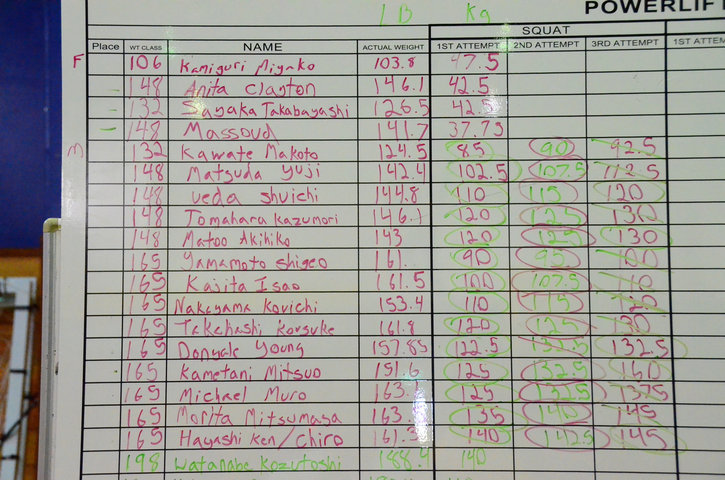 LB Kg POWERLIFT
SQUAT
Place WT CLASS NAME ACTUAL WEIGHT 1ST ATTEMPT 2ND ATTEMPT 3RD ATTEMPT 1ST ATTEMPT
F 106 Kamiguri Miyako 103.8 47.5
148 Anita Clayton 146.1 42.5
132 Sayaka Takabayashi 126.5 42.5
148 Massoud 141.7 37.75
M 132 Kawate Makoto 124.5 85 90 92.5
148 Matsuda Yuji 142.4 102.5 107.5 112.5
148 Ueda Shuichi 144.8 110 115 120
148 Tomahara Kazumori 146.1 120 125 130
148 Matoo Akihiko 143 120 125 130
165 Yamamoto Shigeo 161. 90 95 100
165 Kajita Isao 161.5 100 107.5 110
165 Nakayama Kovichi 153.4 110 115 120
165 Takahashi Kousuke 161.8 120 125 130
165 Donyale Young 157.85 122.5 132.5 132.5
165 Kametani Mitsuo 151.6 125 132.5 160
165 Michael Muro 163. 125 132.5 137.5
165 Morita Mitsumasa 163. 135 140 145
165 Hayashi Ken/chiro 161.3 140 142.5 145
198 Watanabe Kozutoshi 188.4 140